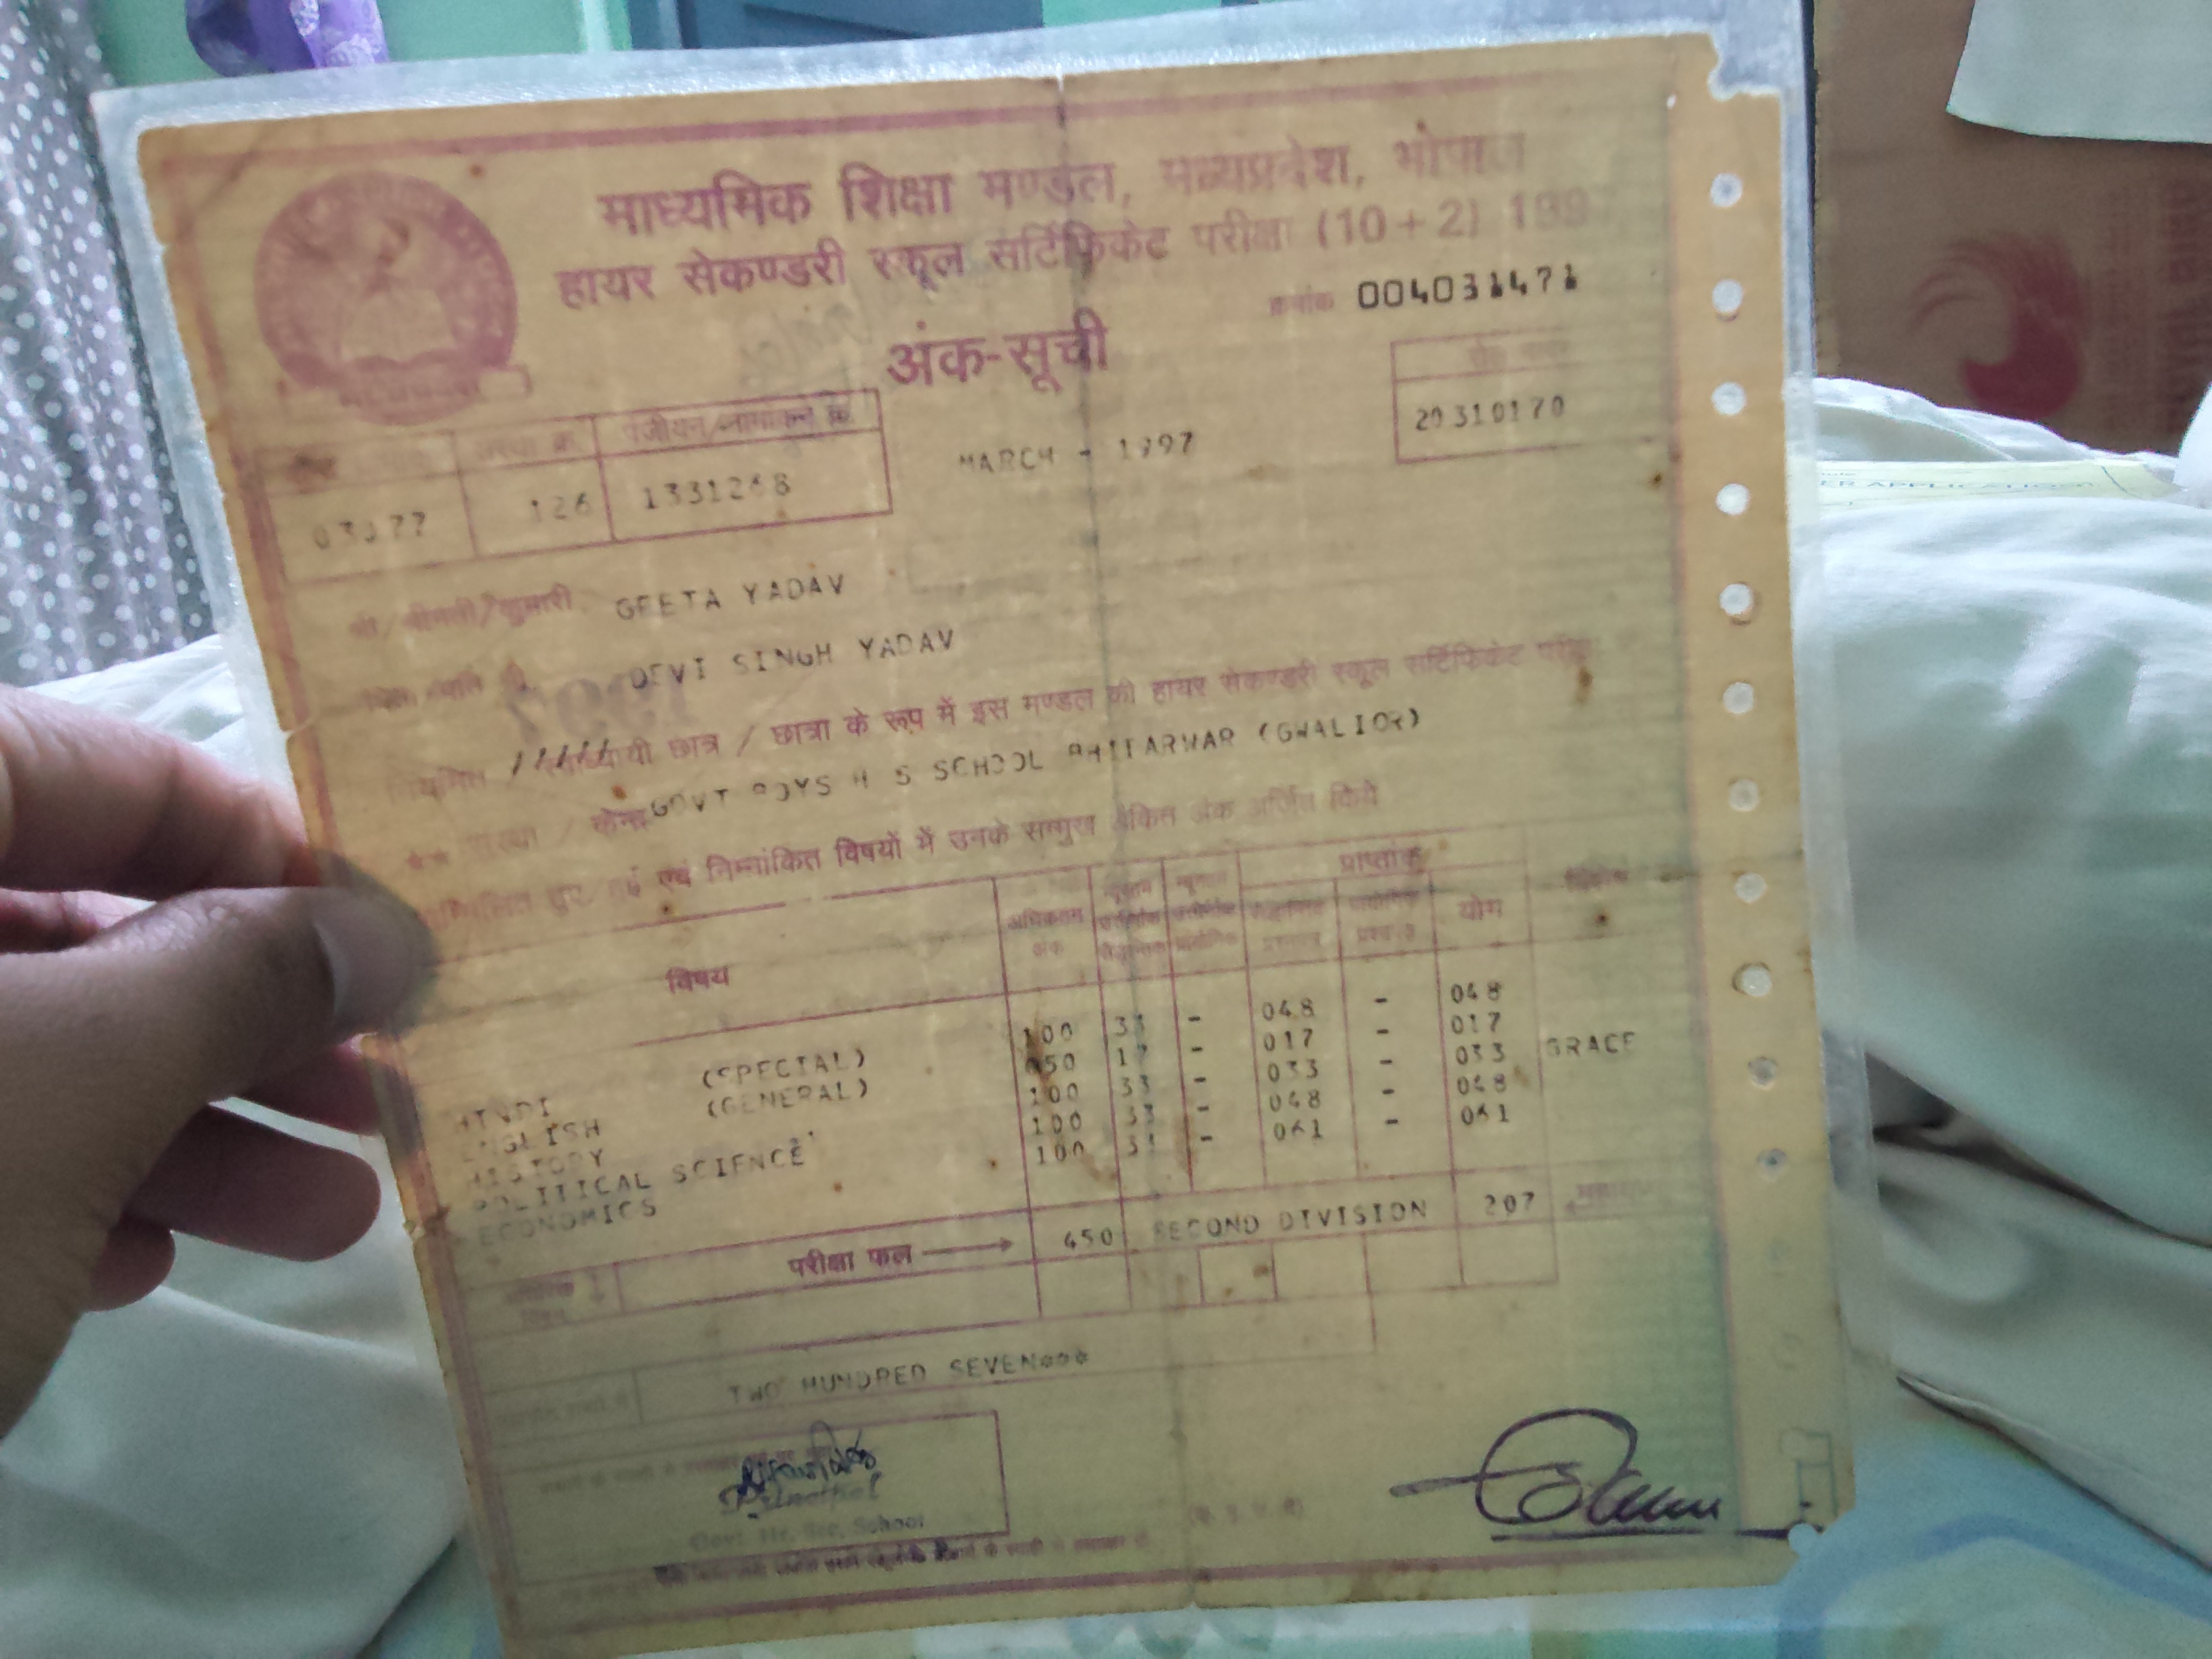 माध्यमिक शिक्षा मण्डल, मध्यप्रदेश, भोपाल
हायर सेकण्डरी स्कूल सर्टिफिकेट परीक्षा (10+2) 199
क्रमांक 004031471
अंक-सूची
पंजीयन/नामांकन क्र.
126 1331268
MARCH - 1997
20310170
श्री/श्रीमती/कुमारी GEETA YADAV
DEVI SINGH YADAV
नियमित / स्वाध्यायी छात्र / छात्रा के रूप में इस मण्डल की हायर सेकण्डरी स्कूल सर्टिफिकेट परीक्षा
संस्था / केन्द्र GOVT BOYS H S SCHOOL BHITARWAR (GWALIOR)
सम्मिलित हुए/हुई एवं निम्नांकित विषयों में उनके सम्मुख अंकित अंक अर्जित किये
विषय अधिकतम अंक प्राप्तांक योग
HINDI (SPECIAL) 100 33 - 048 - 048
ENGLISH (GENERAL) 050 17 - 017 - 017
HISTORY 100 33 - 033 - 033 GRACE
POLITICAL SCIENCE 100 33 - 048 - 048
ECONOMICS 100 33 - 061 - 061
परीक्षा फल 450 SECOND DIVISION 207
TWO HUNDRED SEVEN***
Principal
Govt. Hr. Sec. School